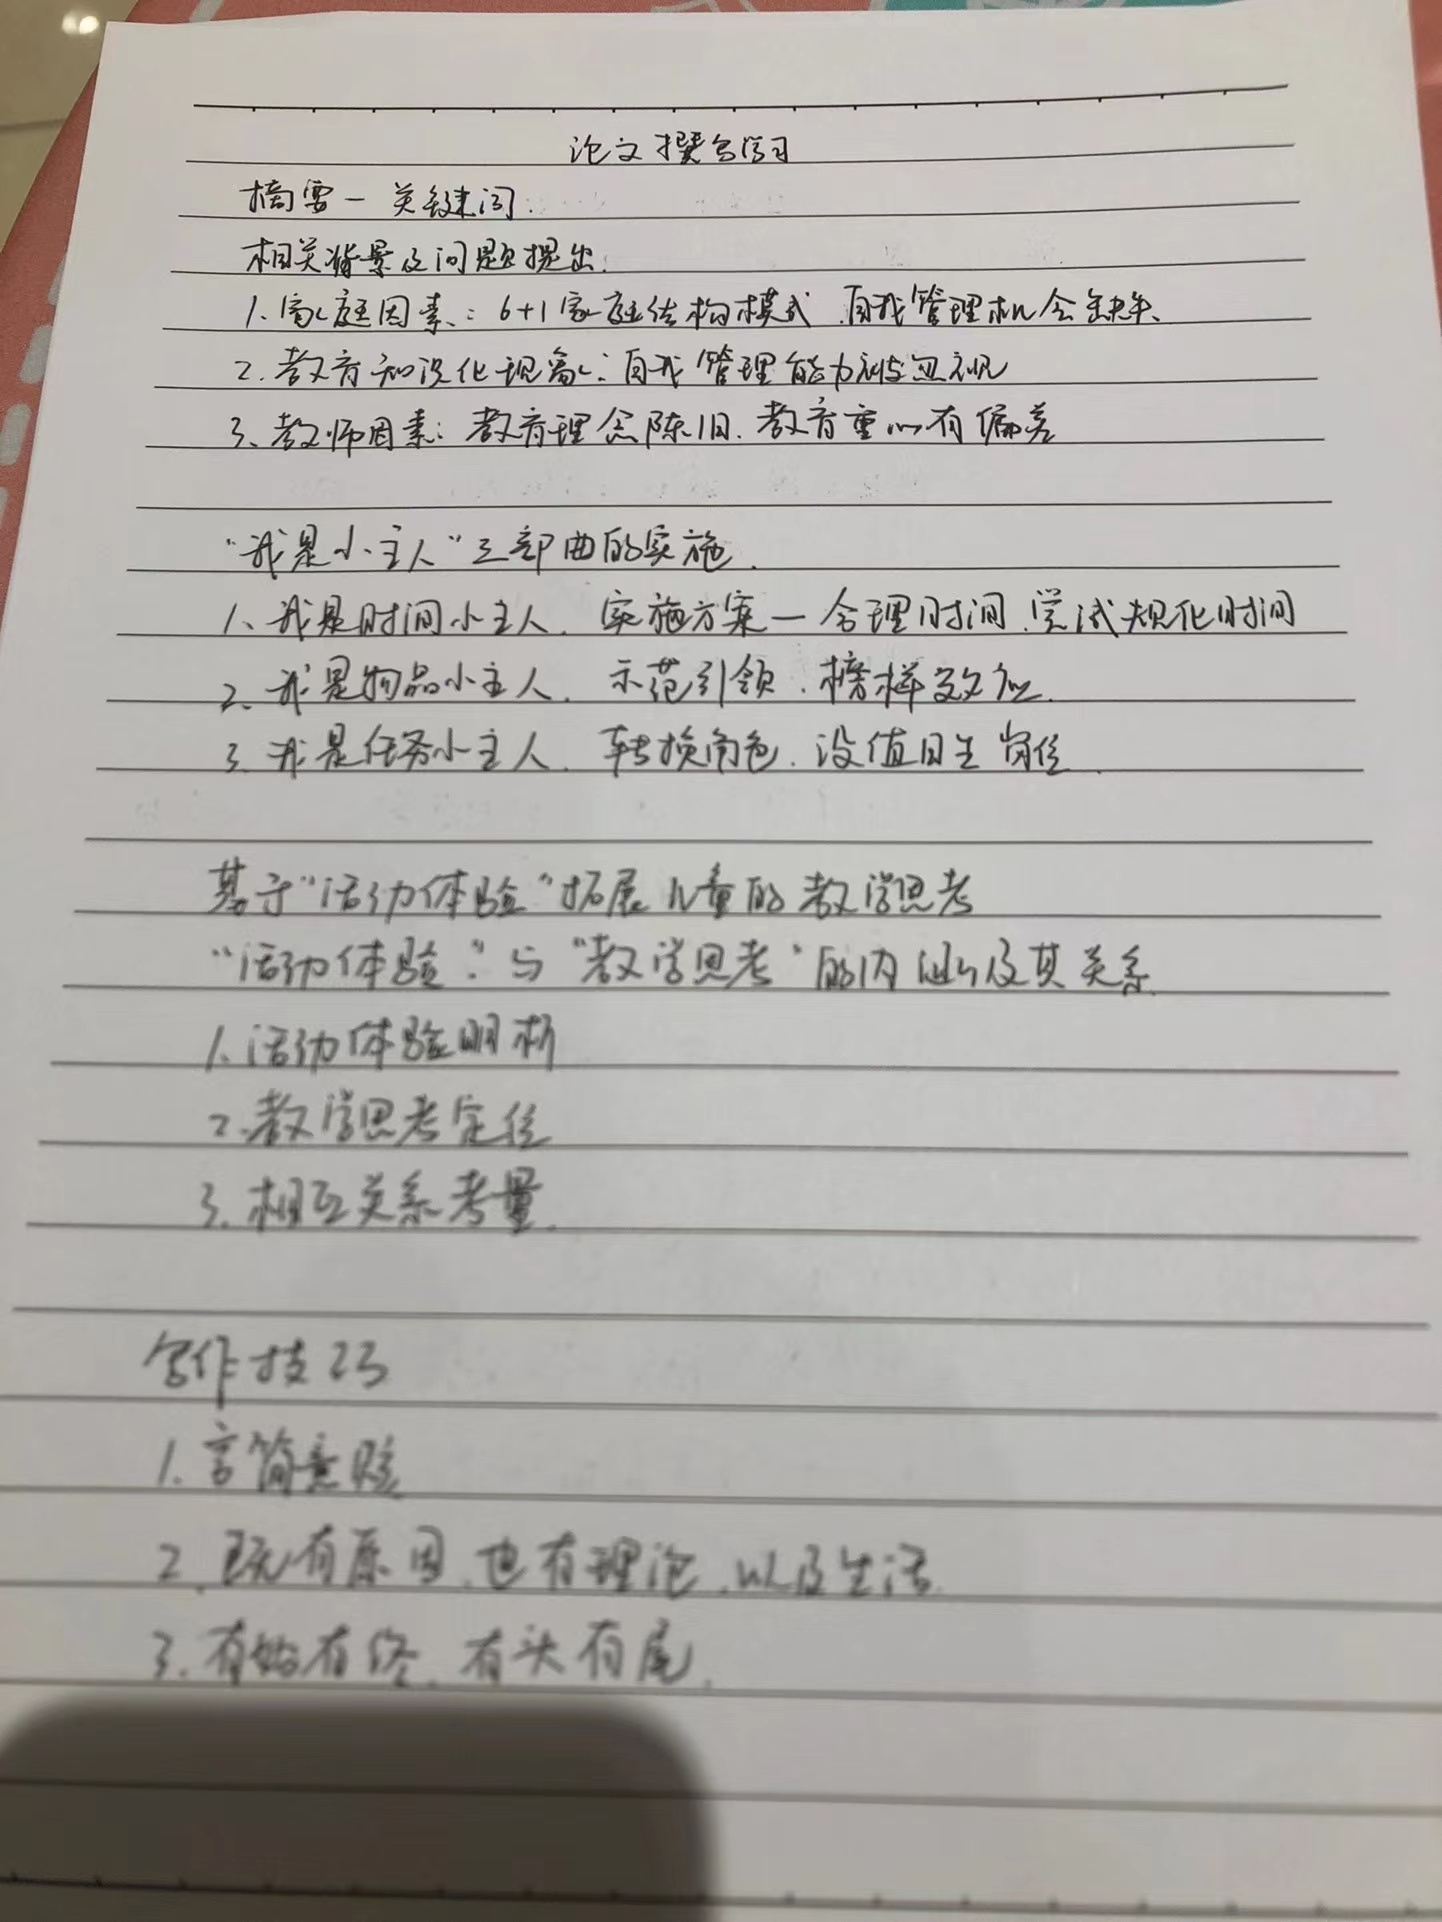 论文撰写学习
摘要一 关键词.
相关背景及问题提出.
1、家庭因素：6+1家庭结构模式，自我管理机会缺失、
2、教育知识化现象：自我管理能力被忽视
3、教师因素：教育理念陈旧，教育重心有偏差
“我是小主人”三部曲的实施.
1、我是时间小主人. 实施方案一合理时间，尝试规化时间
2、我是物品小主人. 示范引领，榜样效应.
3、我是任务小主人. 转换角色，设值日生岗位.
基于“活动体验”拓展儿童的教学思考
“活动体验”与“教学思考”的内涵及其关系
1、活动体验明析
2、教学思考定位
3、相互关系考量.
写作技巧
1、言简意赅
2、既有原因，也有理论，以及生活.
3、有始有终，有头有尾.